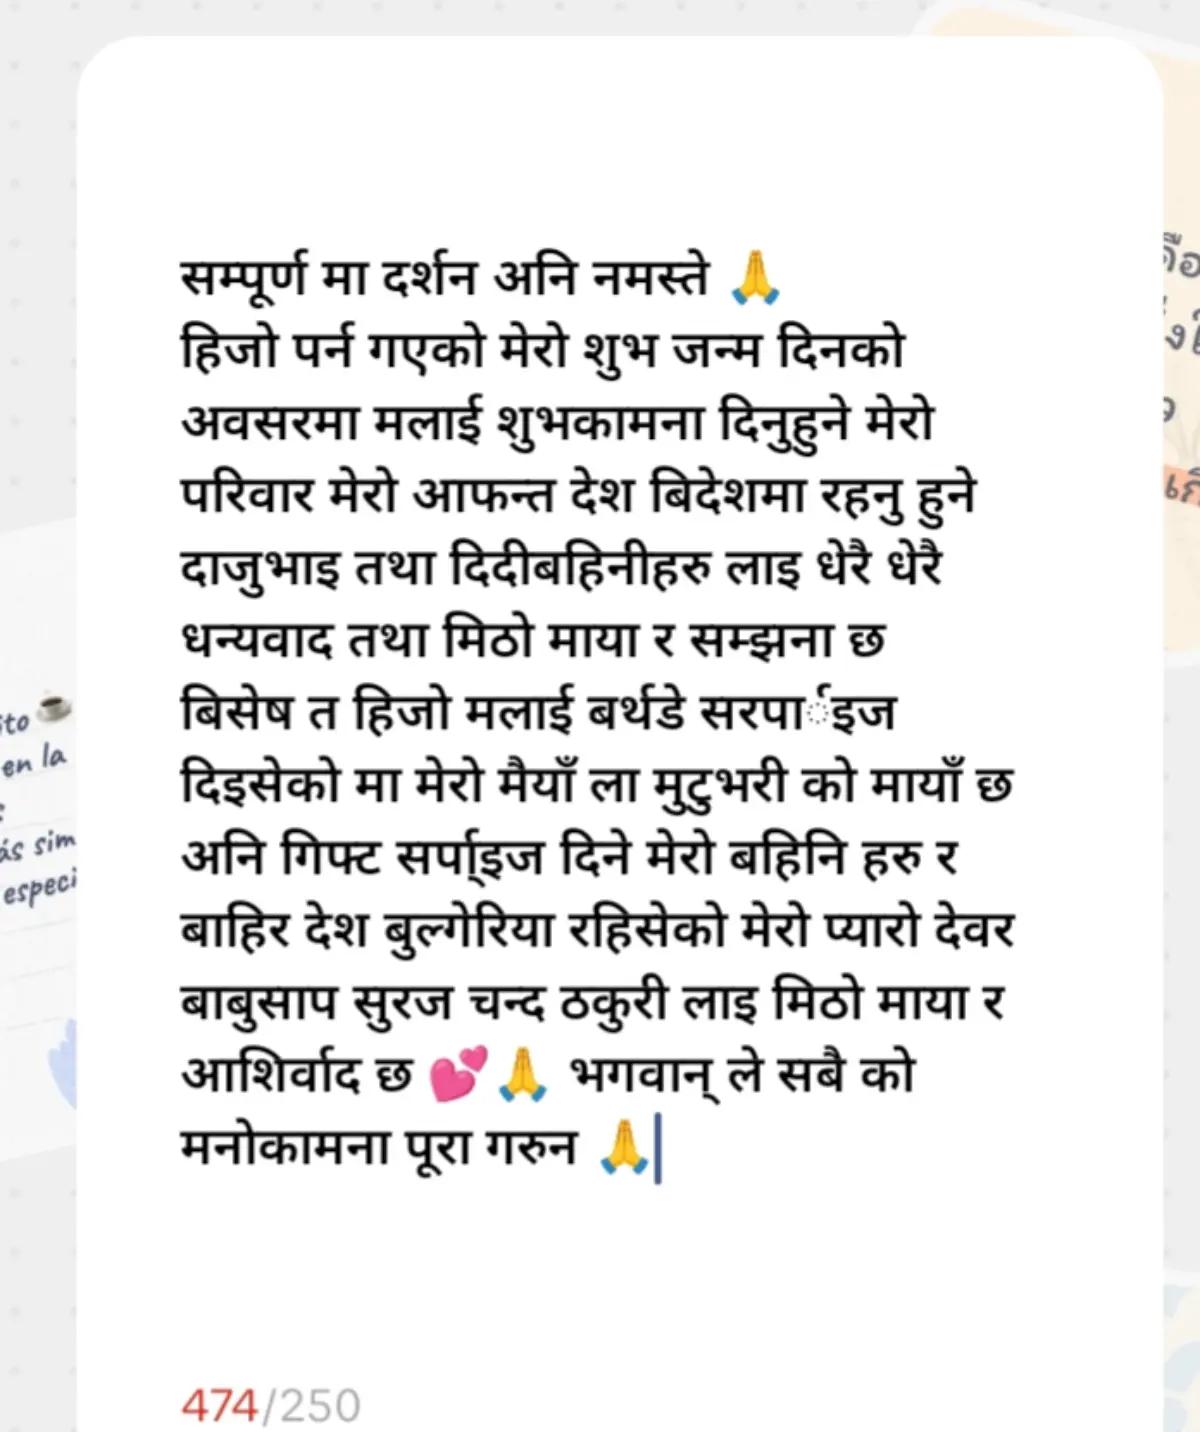 सम्पूर्ण मा दर्शन अनि नमस्ते 🙏
हिजो पर्न गएको मेरो शुभ जन्म दिनको
अवसरमा मलाई शुभकामना दिनुहुने मेरो
परिवार मेरो आफन्त देश बिदेशमा रहनु हुने
दाजुभाइ तथा दिदीबहिनीहरु लाइ धेरै धेरै
धन्यवाद तथा मिठो माया र सम्झना छ
बिसेष त हिजो मलाई बर्थडे सरपार्इज
दिइसेको मा मेरो मैयाँ ला मुटुभरी को मायाँ छ
अनि गिफ्ट सर्पा्इज दिने मेरो बहिनि हरु र
बाहिर देश बुल्गेरिया रहिसेको मेरो प्यारो देवर
बाबुसाप सुरज चन्द ठकुरी लाइ मिठो माया र
आशिर्वाद छ 💕🙏 भगवान् ले सबै को
मनोकामना पूरा गरुन 🙏
474/250
en la
ás sim
especi